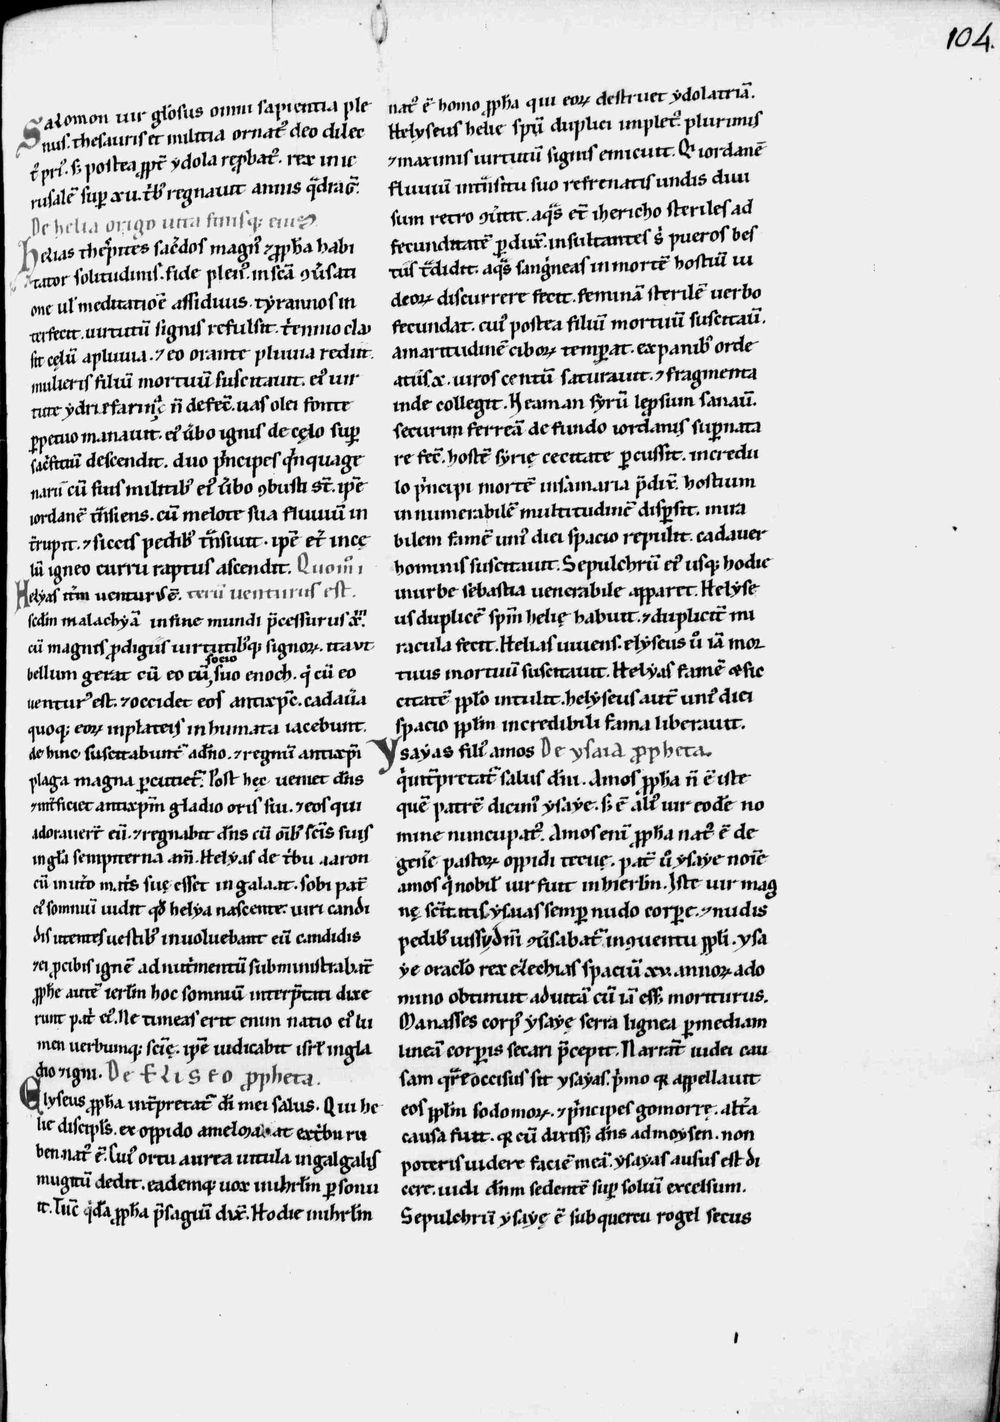 104.
Salomon uir gl̄osus omni sapientia ple
nus. thesauris et militia ornatꝰ deo dilec
tꝰ pri. s; postea ꝓpt̄ ydola rep̱batꝰ. rex in ie
rusalē sup̱ xii. tͥbꝰ regnauit annis q̄dͣg̃.
De helia origo uita finisq; eius
Helias thesbites sac̄dos magnꝰ ⁊ ꝓpha habi
tator solitudinis. fide plenꝰ. in sc̄a ꝯūsati
one ul̓ meditatioē assiduus. tyrannos in
terfecit. uirtutū signis refulsit. tͥennio clau
sit cęlū a pluuia. ⁊ eo orante pluuia rediit.
mulieris filiū mortuū suscitauit. eiꝰ uir
tute ydrie farinͣ n̄ defec̄. uas olei fonte
ꝑpetuo manauit. eiꝰ ūbo ignis de cęlo sup̱
sac̄ficiū descendit. duo pͥncipes qͥnquage
nariī cū suis militibꝰ eiꝰ ūbo ꝯbusti st̄. ip̄e
iordanē tͣnsiens. cū melote sua fluuiū in
t̄rupit. ⁊ siccis pedibꝰ tͣnsiuit. ip̄e et̄ in cę
lū igneo curru raptus ascendit. Quom̊ i
Helyas itm̄ venturꝰ ē. terū uenturus est.
scd̄m malachyā in fine mundi p̄cessurus xͫ.
cū magnis ꝓdigiis uirtutibꝰq; signoꝝ. ita ut
socio
bellum gerat cū eo cū suo enoch. qͥ cū eo
uenturꝰ est. ⁊ occidet eos antixp̄c. cadaūa
quoq; eoꝝ in plateis inhumata iacebunt.
de hinc suscitabunt᷑ a dn̄o. ⁊ regnū antixp̄i
plaga magna ꝑcutiet᷑. Post hęc ueniet dn̄s
⁊ int̄ficiet antixp̄m gladio oris sui. ⁊ eos qui
adorauerē eū. ⁊ regnabit dn̄s cū oīb̄ꝰ scīs suis
in gl̄a sempiterna am̄. Helyas de tͥbu aaron
cū in ut̄o mat̄s suę esset in galaat. sobi pat̄
eiꝰ somniū uidit qđ helya nascente. uiri candi
dis utentes uestibꝰ inuoluebant eū candidis
⁊ ei ꝓ cibis ignē ad nutͥmentū subministrabāt
ꝓphe autē ierl̄m hoc somniū interp̄tati dixe
runt pat̄ eiꝰ. Ne timeas erit enim natio eiꝰ lu
men uerbumq; scīę. ip̄e iudicabit isrl̄ in gla
dio ⁊ igni. De Eliseo ꝓpheta.
Elyseus ꝓpha int̄pretat᷑ dī mei salus. Qui he
lie discipl̄s. ex oppido amelmaat ex tͥbu ru
ben natꝰ ē. Cuiꝰ ortu aurea uitula in galgalis
mugitū dedit. eademq; uox in ihrl̄m ꝑsonu
it. Tūc qͥdā ꝓpha p̄sagiū dix̄. Hodie in ihrl̄m
natꝰ ē homo ꝓpha qui eoꝝ destruet ydolatriā.
Helyseus helie spū duplici impletꝰ. plurimis
⁊ maximis uirtutū signis emicuit. Qͥ iordanē
fluuiū intͣnsitu suo refrenatis undis diui
sum retro ꝯūtit. aqͣs et̄ ihericho steriles ad
fecunditatē ꝑdux̄. insultantes s̄ pueros bes
tiis tͣdidit. aqͣs sangͥneas in mortē hostiū iu
deoꝝ discurrere fecit. feminā sterilē uerbo
fecundat. cuiꝰ postea filiū mortuū suscitaū.
amaritudinē ciboꝝ temp̱at. ex panibꝰ orde
atiis. x. uiros centū saturauit. ⁊ fragmenta
inde collegit. Neaman syrū lep̱sium sanaū.
securim ferreā de fundo iordanis sup̱nata
re fec̄. hostē syrię cecitate ꝑcussit. incredu
lo pͥncipi mortē in samaria p̄dix̄. hostium
innumerabilē multitudinē disp̱sit. mira
bilem famē uniꝰ diei spacio repulit. cadauer
hominis suscitauit. Sepulchrū eiꝰ usq; hodie
in urbe sebastia uenerabile apparet. Helyse
us duplicē spm̄ helię habuit. ⁊ dupliciē mi
racula fecit. Helias uiuens. elyseus ů iā mor
tuus mortuū suscitauit. Helyas famē ⁊ sic
citatē pplo intulit. helyseus autē uniꝰ diei
spacio ppl̄m incredibili fama liberauit.
Ysayas filiꝰ amos De ysaia ꝓpheta.
qͥ int̄pretat᷑ salus dn̄i. Amos ꝓpha n̄ ē iste
quē patrē dicimꝰ ysaye. s; ē aliꝰ uir eodē no
mine nuncupatꝰ. Amos enī ꝓpha natꝰ ē de
gen̄e pastoꝝ oppidi tecuę. pat̄ ů ysaye noīe
amos qͥ nobil̓ uir fuit in hierl̄m. Iste uir mag
nę scīt̄atis ysaias semp̱ nudo corpe. ⁊ nudis
pedibꝰ iussu dn̄i ꝯūsabat᷑ in ꝯuentu ppl̄i. ysa
ye oracl̓o rex ezechias spaciū xv. annoꝝ ado
mino obtinuit ad uitā cū iā ess; moriturus.
Manasses corpꝰ ysayę serra lignea ꝑ mediam
lineā corp̱is secari p̄cepit. Narrāt iudei cau
sam qͣre occisus sit ysayas. pͥmo qꝛ appellauit
eos ppl̄m sodomoꝝ. ⁊ pͥncipes gomorrę. alt̄a
causa fuit. qꝛ cū dixiss; dn̄s ad moysen. non
poteris uidere faciē meā. ysayas ausus est di
cere. uidi dn̄m sedentē sup̱ soliū excelsum.
Sepulchrū ysayę ē sub quercu rogel secus